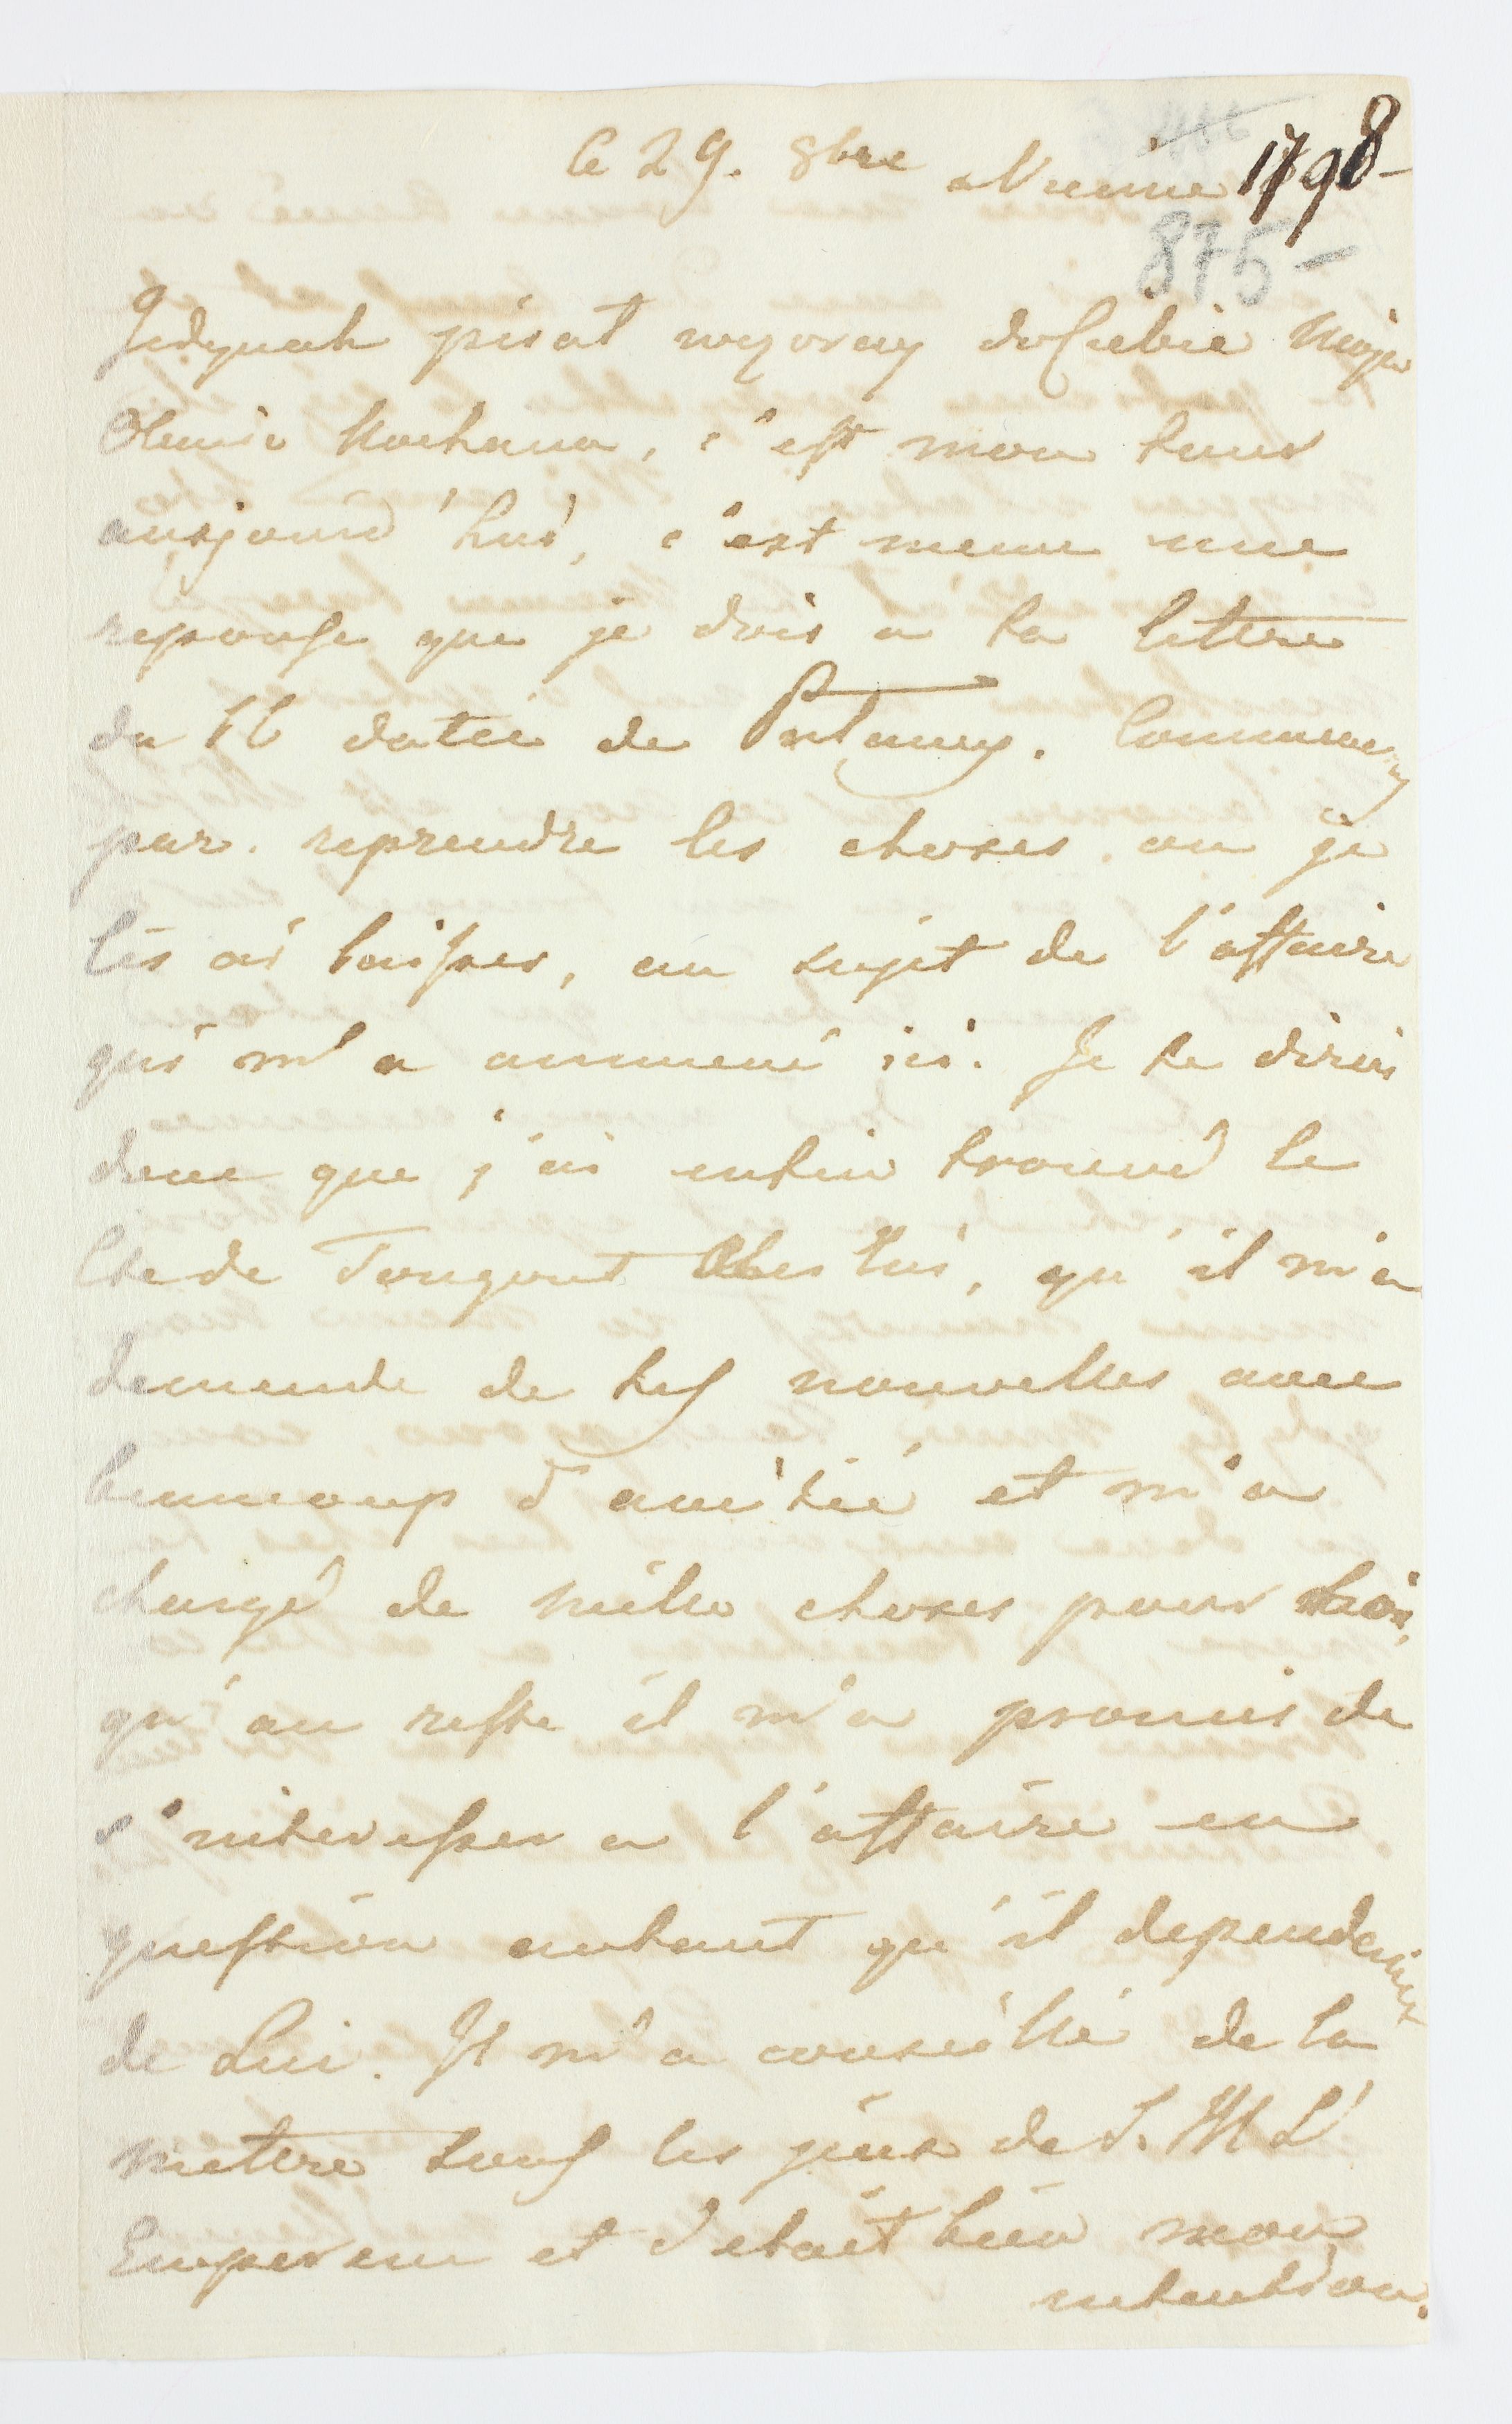 le 29. 8bre a Vienne 1798
875-
Jednak pisat wczoray do Ciebie Moja
Olesiu Kochana, c'est mon tour
aujourd'hui, c'est meme une
reponse que je dois a ta lettre
du 16 datée de Pulawy. Commencons
par reprendre les choses ou je
les ai laisser, au sujet de l'affaire
qui m'a ammené ici. Je te dirai
donc que j'ai enfin trouvé le
Cte de chez lui, qu'il m'a
demende de tes nouvelles avec
beaucoup d'amitié et m'a
chargé de mille choses pour toi,
qu'au reste il m'a promis de
s'interesser a l'affaire en
question autant qu'il dependerait
de Lui. Il m'a conseillé de la
mettre sous les yeux de S. M L'
Empereur et c'etait bien mon
intention.